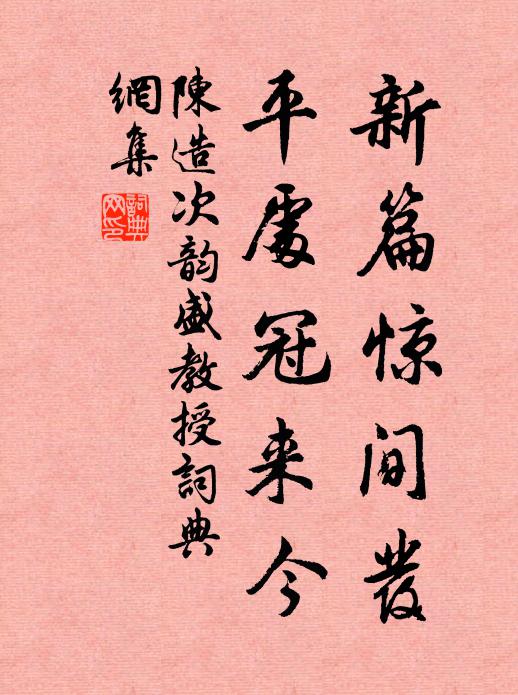 新篇惊间發
平處冠来今
陳造次韵盛教授詞典
網集
詞典网印